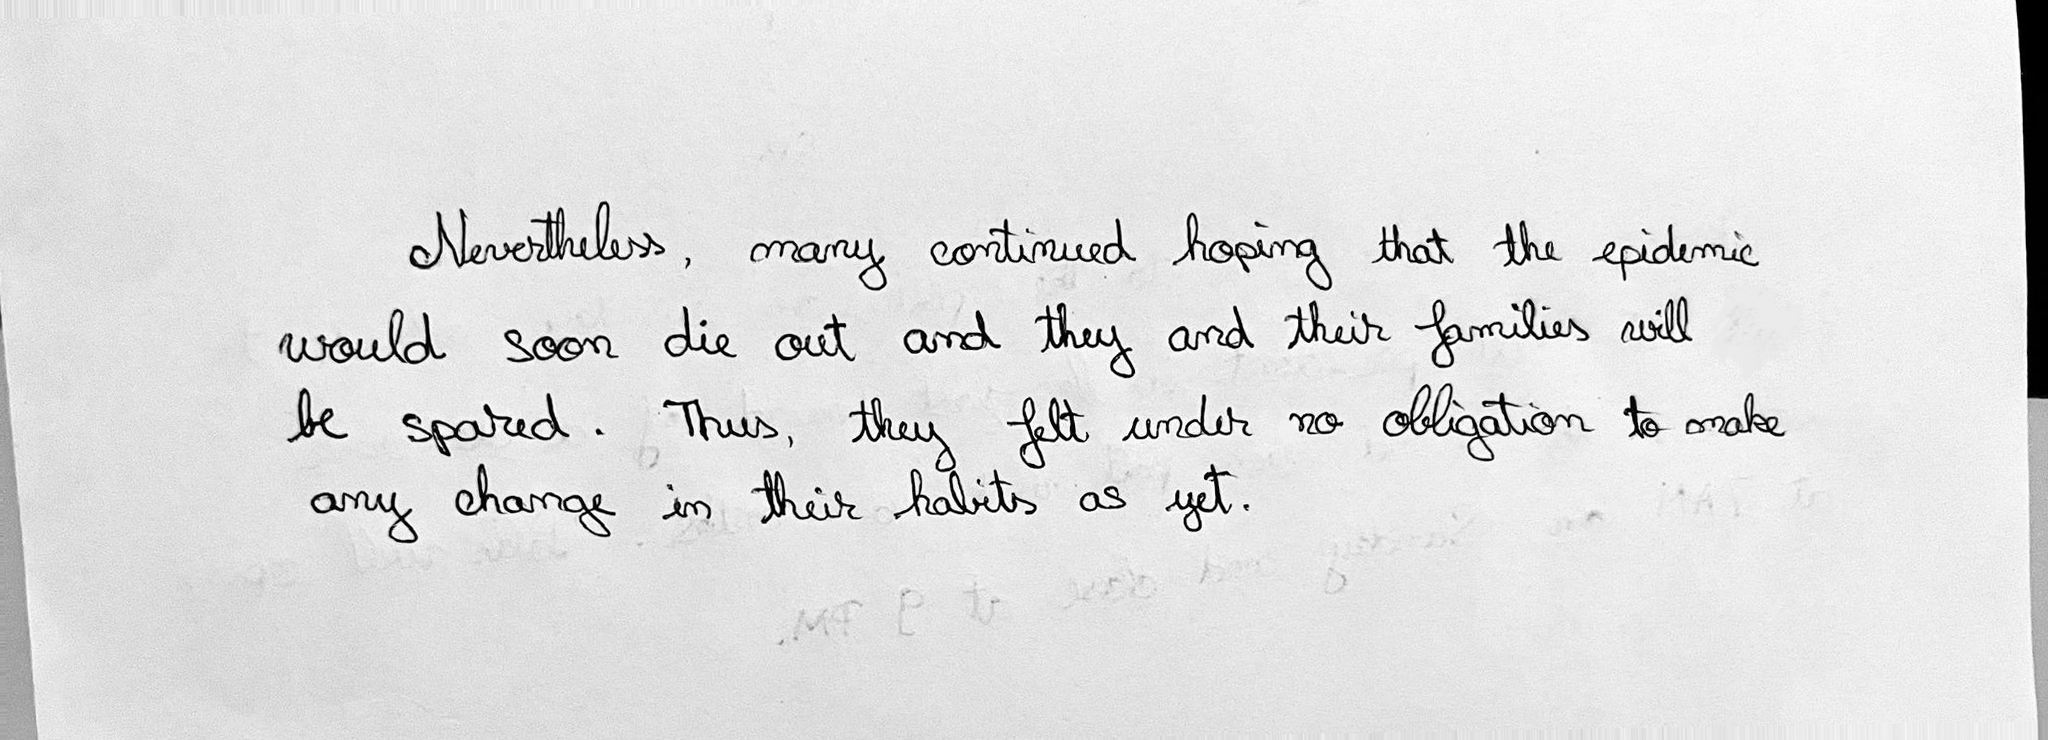 Nevertheless, many continued hoping that the epidemic
would soon die out and they and their families will
be spared. Thus, they felt under no obligation to make
any change in their habits as yet.